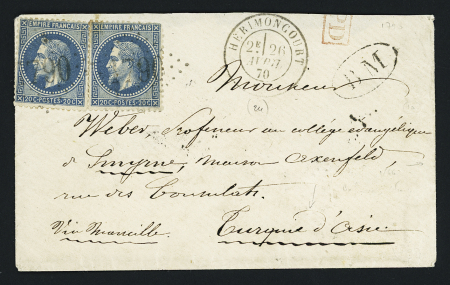 EMPIRE FRANÇAIS EMPIRE FRANÇAIS
20C POSTES 20C 20C POSTES 20C
HÉRIMONCOURT
2E 26
70
PD
BM
Monsieur
Weber, Professeur au collège évangélique
de Smyrne, maison Axenfeld,
rue des Consulats.
Via Marseille. Turquie d'Asie